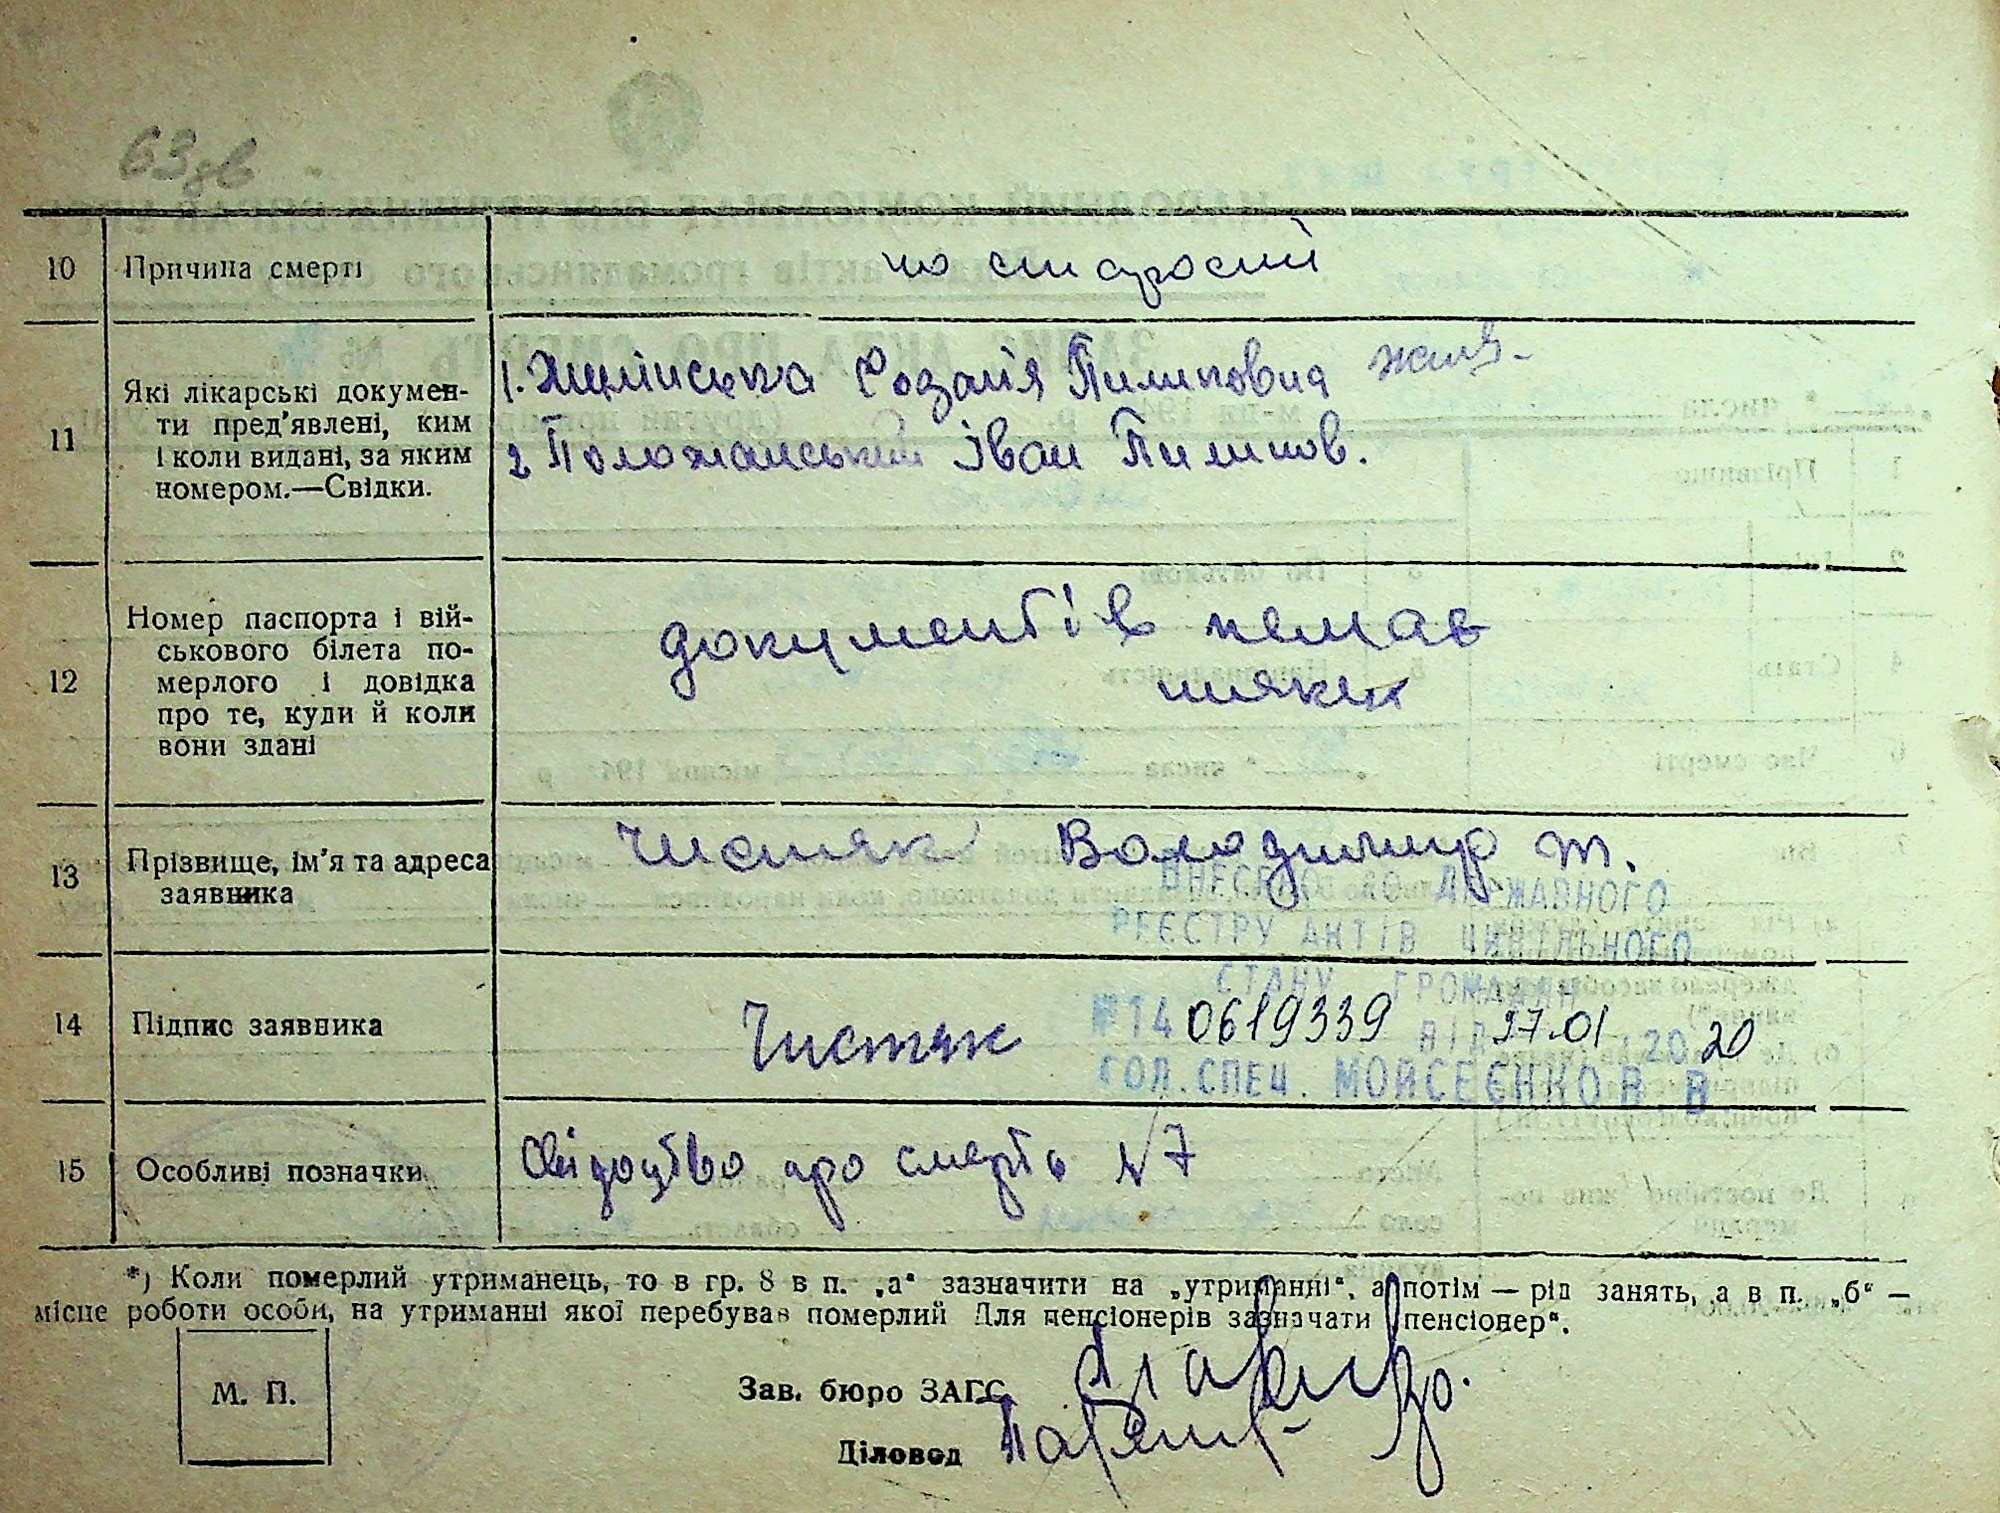 63зв
10 Причина смерті по старості
11 Які лікарські документи пред'явлені, ким і коли видані, за яким номером.—Свідки.
1. Жилінська Розалія Пилиповна
2 Положанський Іван Пилипов.
12 Номер паспорта і військового білета померлого і довідка про те, куди й коли вони здані
документів немає
ніяких
13 Прізвище, ім'я та адреса заявника
Чистяк Володимир Т.
ВНЕСЕНО ДО ДЕРЖАВНОГО
РЕЄСТРУ АКТІВ ЦИВІЛЬНОГО
СТАНУ ГРОМАДЯН
14 Підпис заявника Чистяк
№14 0619339 ВІД 27.01 2020
ГОЛ.СПЕЦ. МОЙСЕЄНКО В В
15 Особливі позначки Свідоцтво про смерть №7
*) Коли померлий утриманець, то в гр. 8 в п. „а“ зазначити на „утриманні“, а потім — рід занять, а в п. „б“ —
місце роботи особи, на утриманні якої перебував померлий Для пенсіонерів зазначати „пенсіонер“.
М. П.
Зав. бюро ЗАГС
Діловод